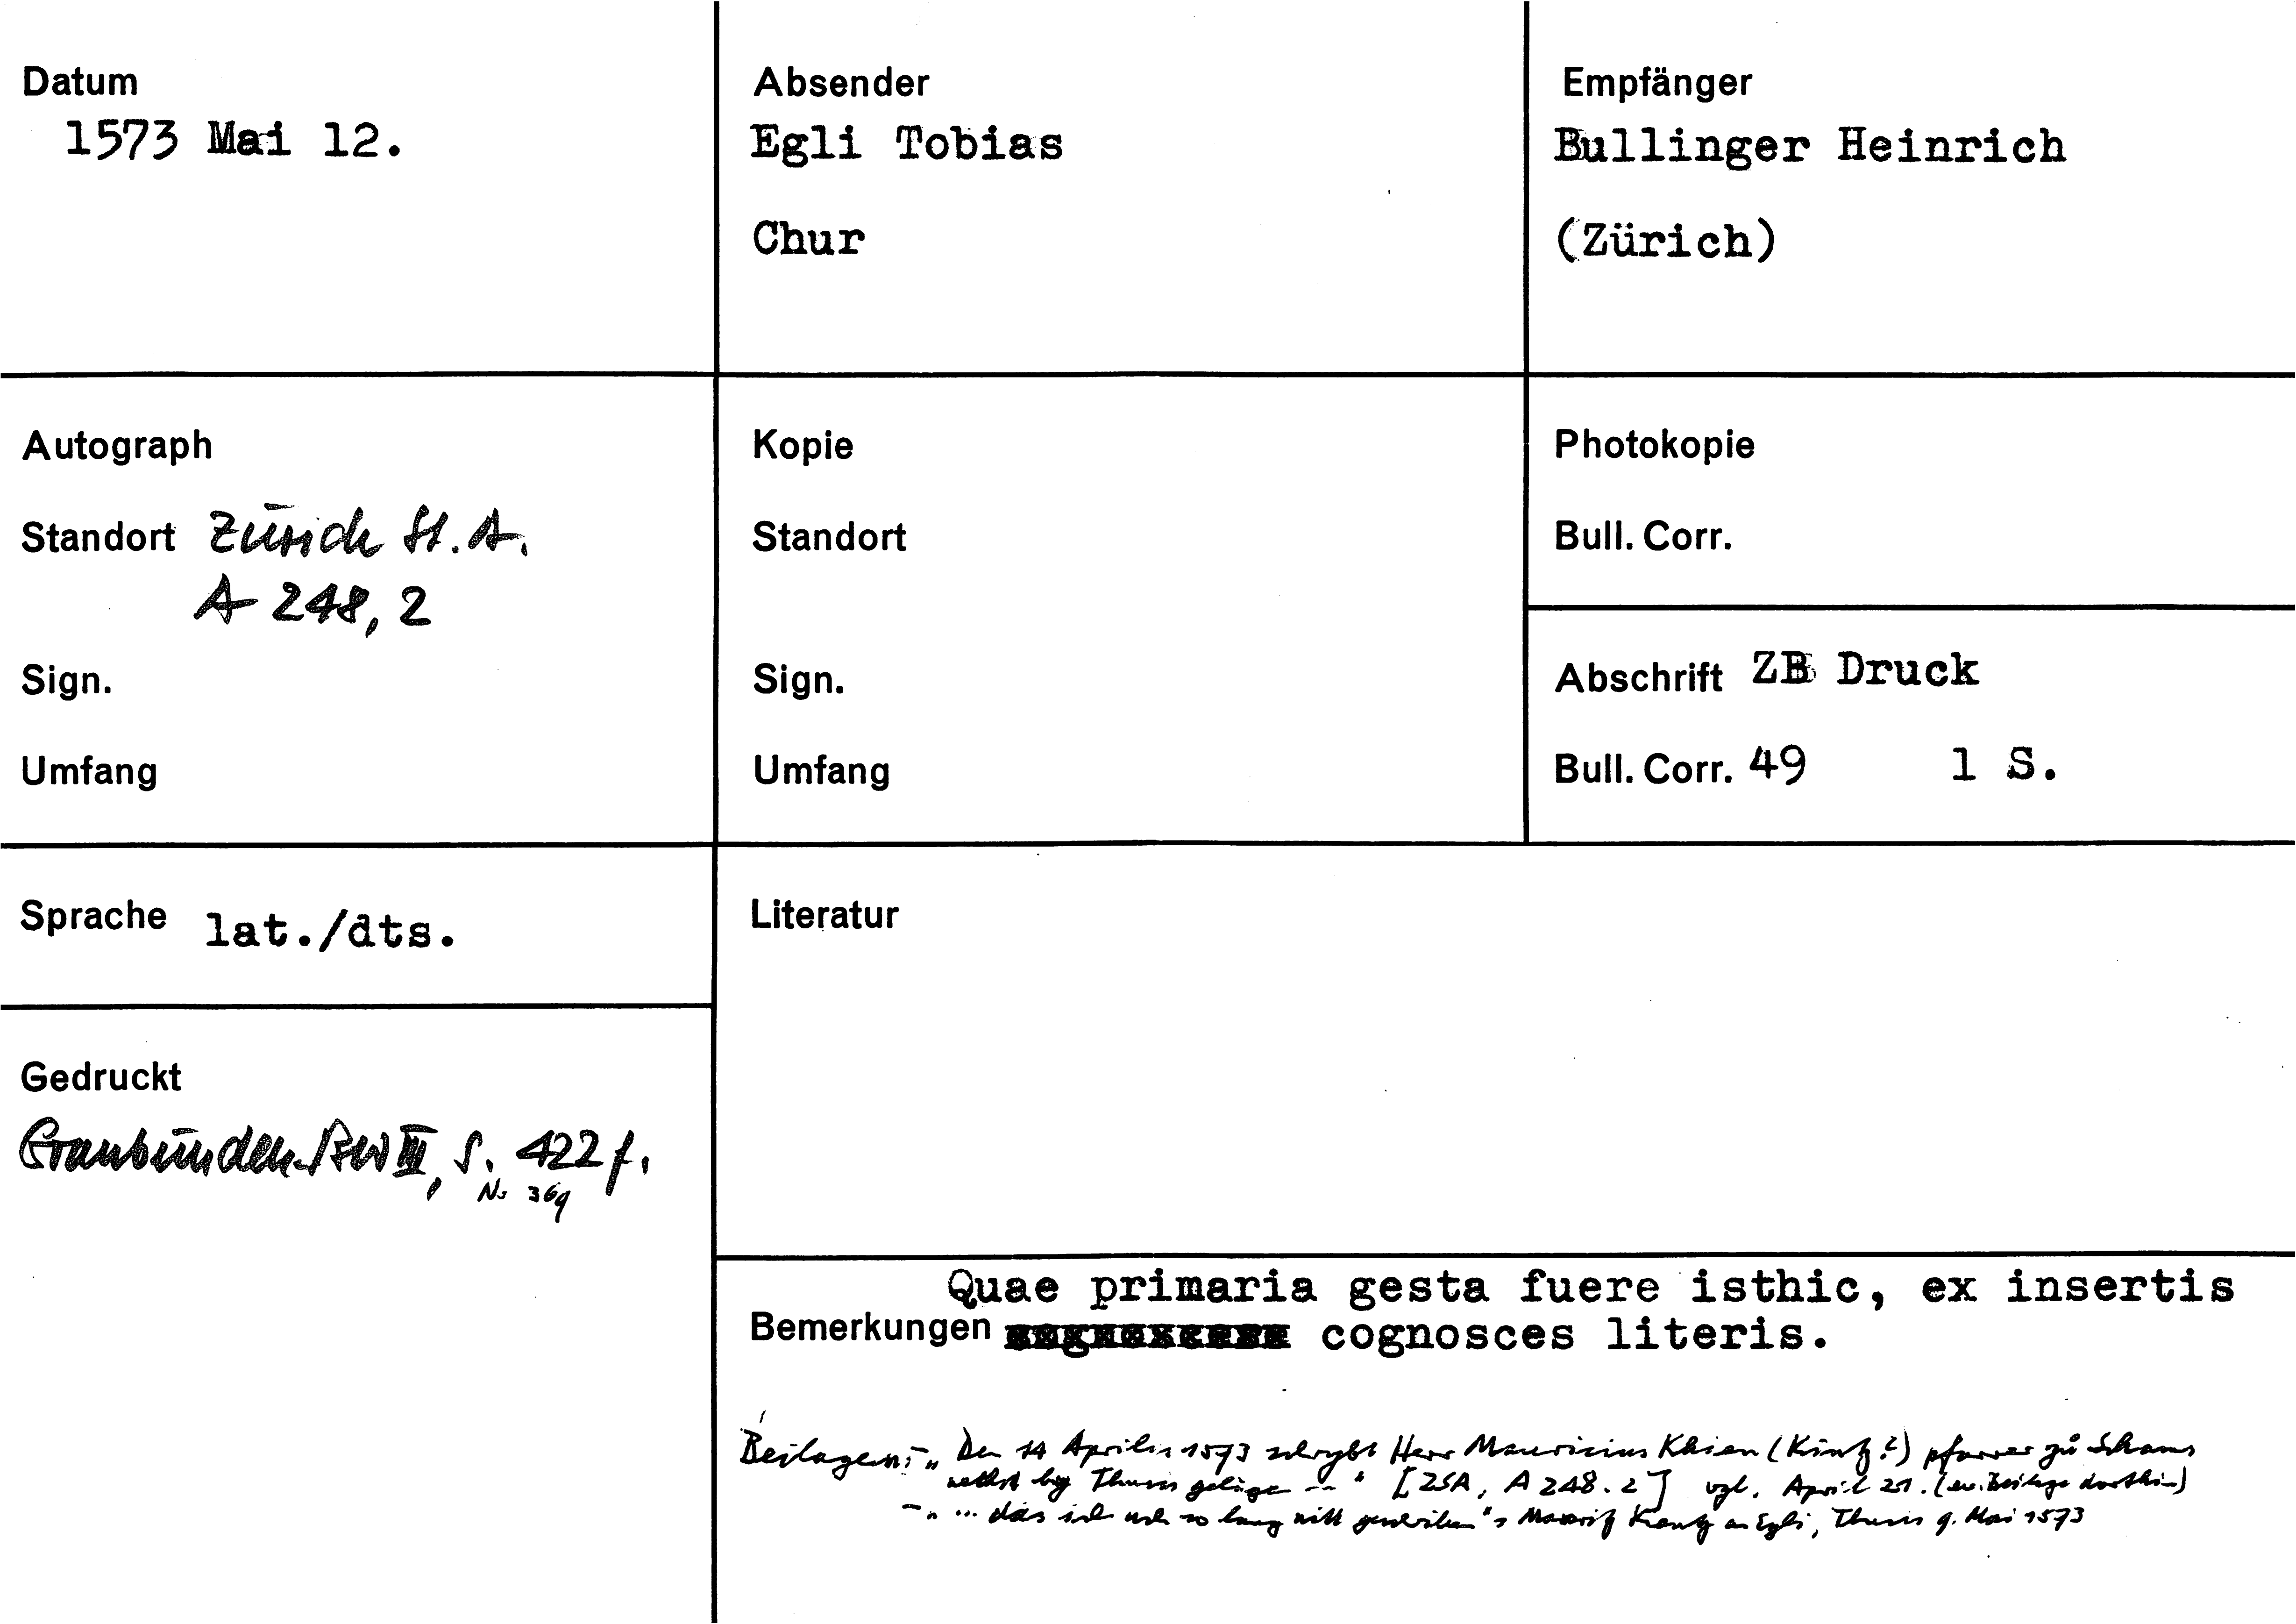 Datum
1573 Mai 12.
Absender
Egli Tobias
Chur
Empfänger
Bullinger Heinrich
(Zürich)
Autograph
Standort Zürich St. A.
A 248, 2
Sign.
Umfang
Kopie
Standort
Sign.
Umfang
Photokopie
Bull. Corr.
Abschrift ZB Druck
Bull. Corr. 49 1 S.
Sprache lat./dts.
Literatur
Gedruckt
Graubünden III, S. 422 f.
Nr 369
Quae primaria gesta fuere isthic, ex insertis
Bemerkungen cognosces literis.
Beilagen: - „Den 14 Aprilis 1573 schrybt Herr Mauricius (Kintz?) pfarrer zů Schams
by Thusis " [ZSA, A 248.2] vgl. April 21. (ev. Beilage dorthin)
- „... das ich uch so lang nitt geschriben": an Egli, Thusis 9. Mai 1573